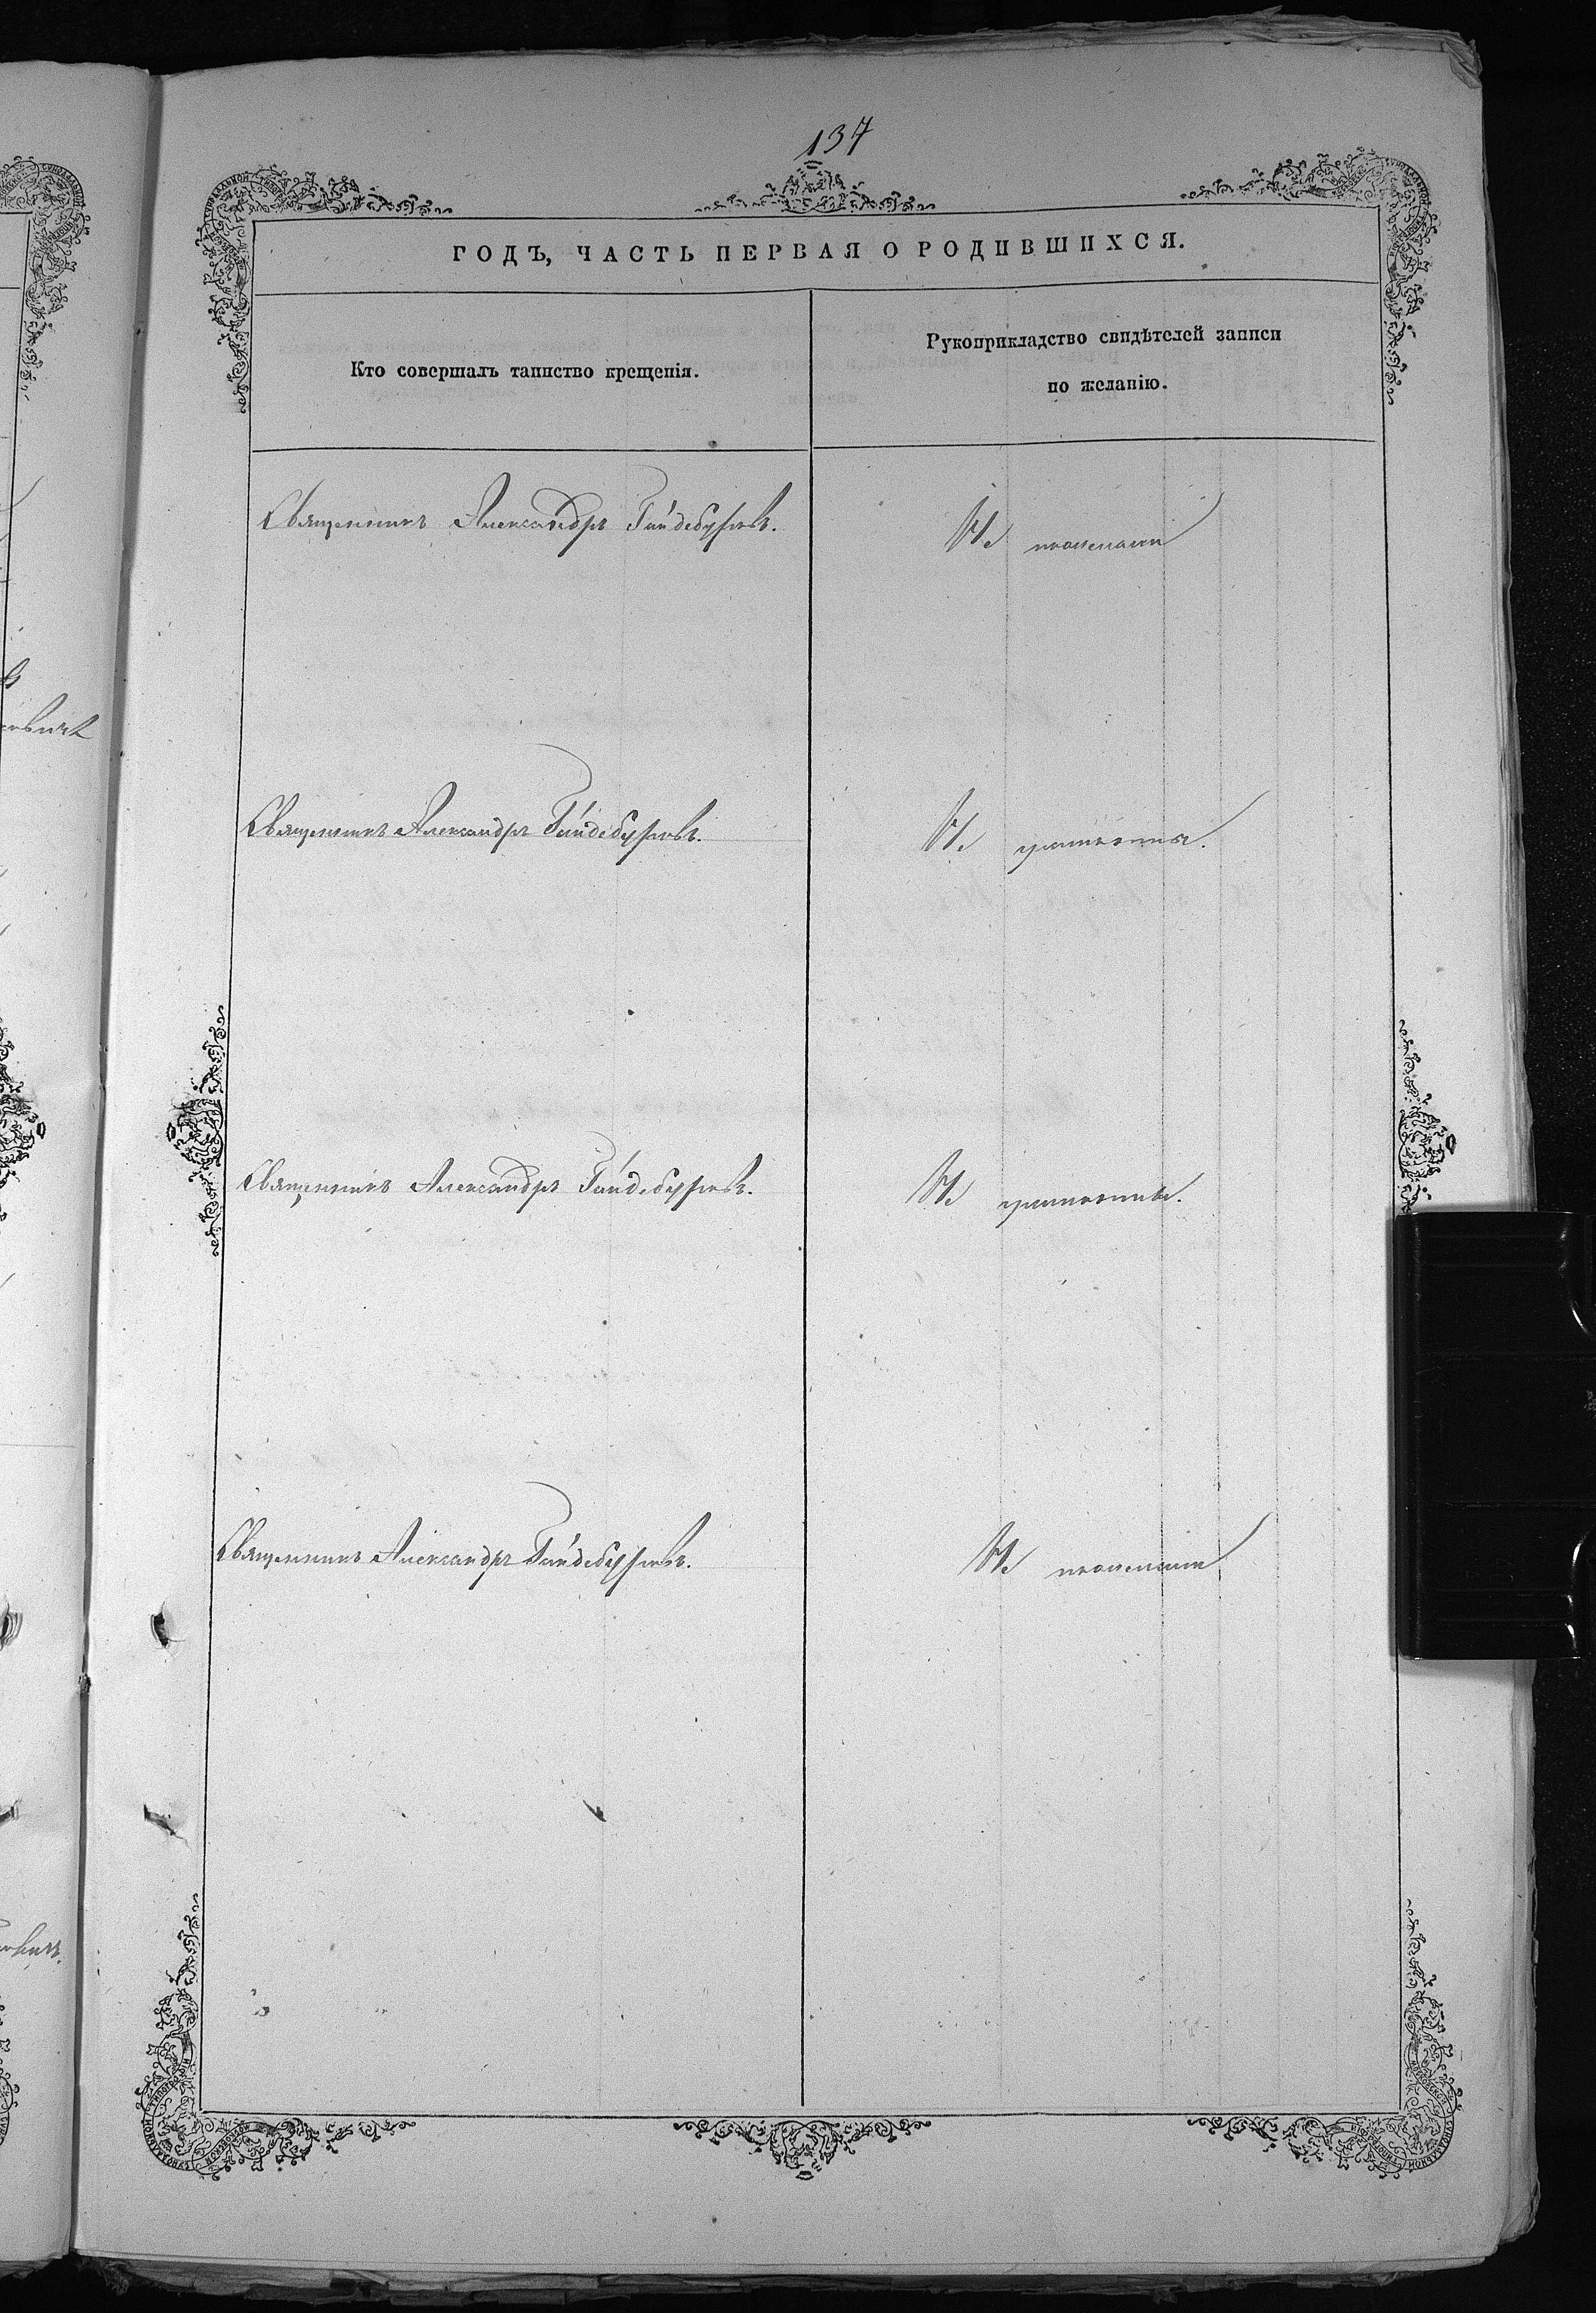 137
ГОДЪ, ЧАСТЬ ПЕРВАЯ О РОДИВШИХСЯ.
Кто совершалъ таинство крещенія.
Рукоприкладство свидѣтелей записи
по желанію.
Священникъ Александръ Гайдебуровъ.
Не пожелали
Священникъ Александръ Гайдебуровъ.
Не грамотны.
Священникъ Александръ Гайдебуровъ.
Не грамотны.
Священникъ Александръ Гайдебуровъ.
Не пожелали